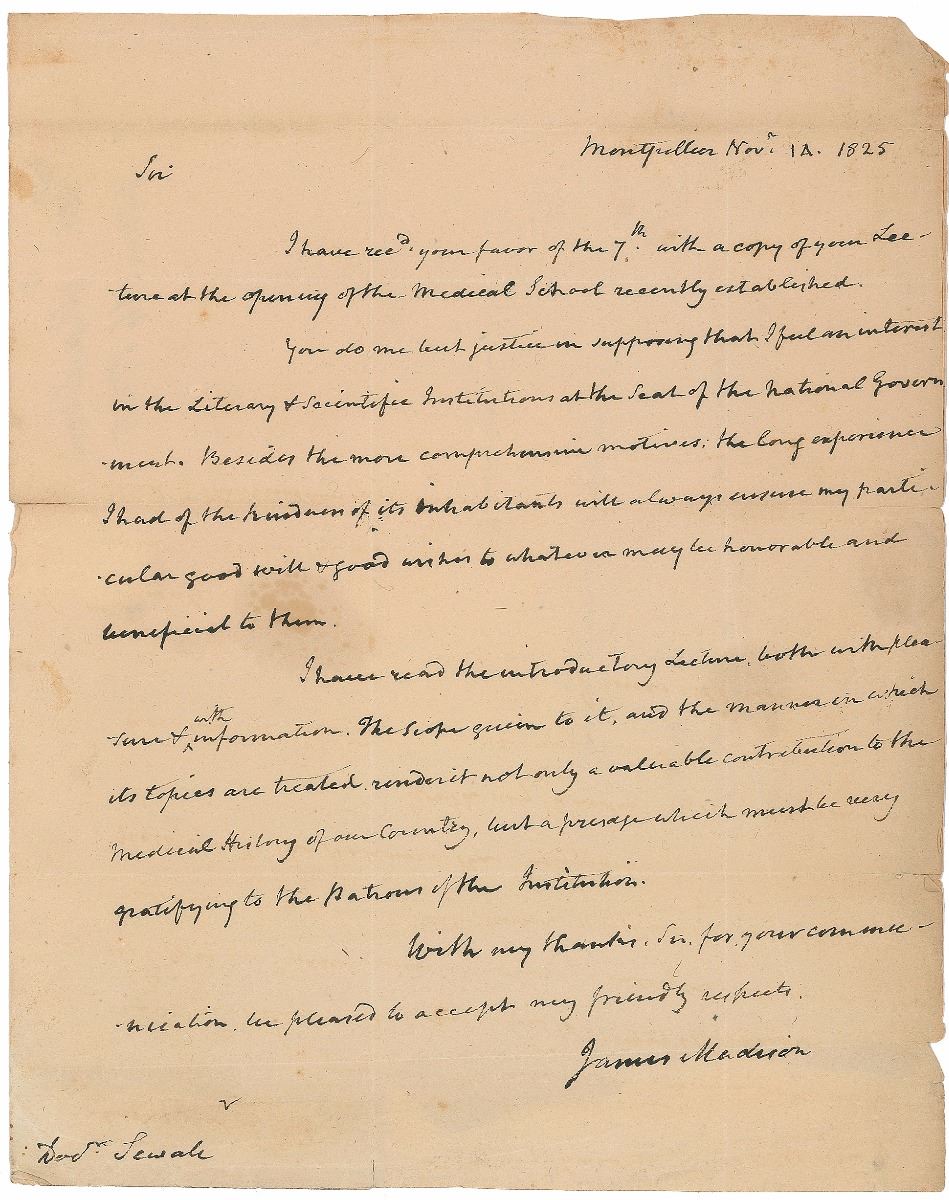 Montpellier Nov.r 14. 1825
Sir
I have rec.d your favor of the 7.th with a copy of your Lec-
ture at the opening of the Medical School recently established.
You do me but justice in supposing that I feel an interest
in the Literary & Scientific Institutions at the Seat of the National Govern
-ment. Besides the more comprehensive motives; the long experience
I had of the kindness of its inhabitants will always ensure my parti-
-cular good will & good wishes to whatever may be honorable and
beneficial to them.
I have read the introductory Lecture, both with plea
sure & with information. The scope given to it, and the manner in which
its topics are treated, render it not only a valuable contribution to the
Medical History of our Country, but a presage which must be very
gratifying to the Patrons of the Institution.
With my thanks, Sir, for your commu-
-nication, be pleased to accept my friendly respects.
James Madison
Doctr Sewall